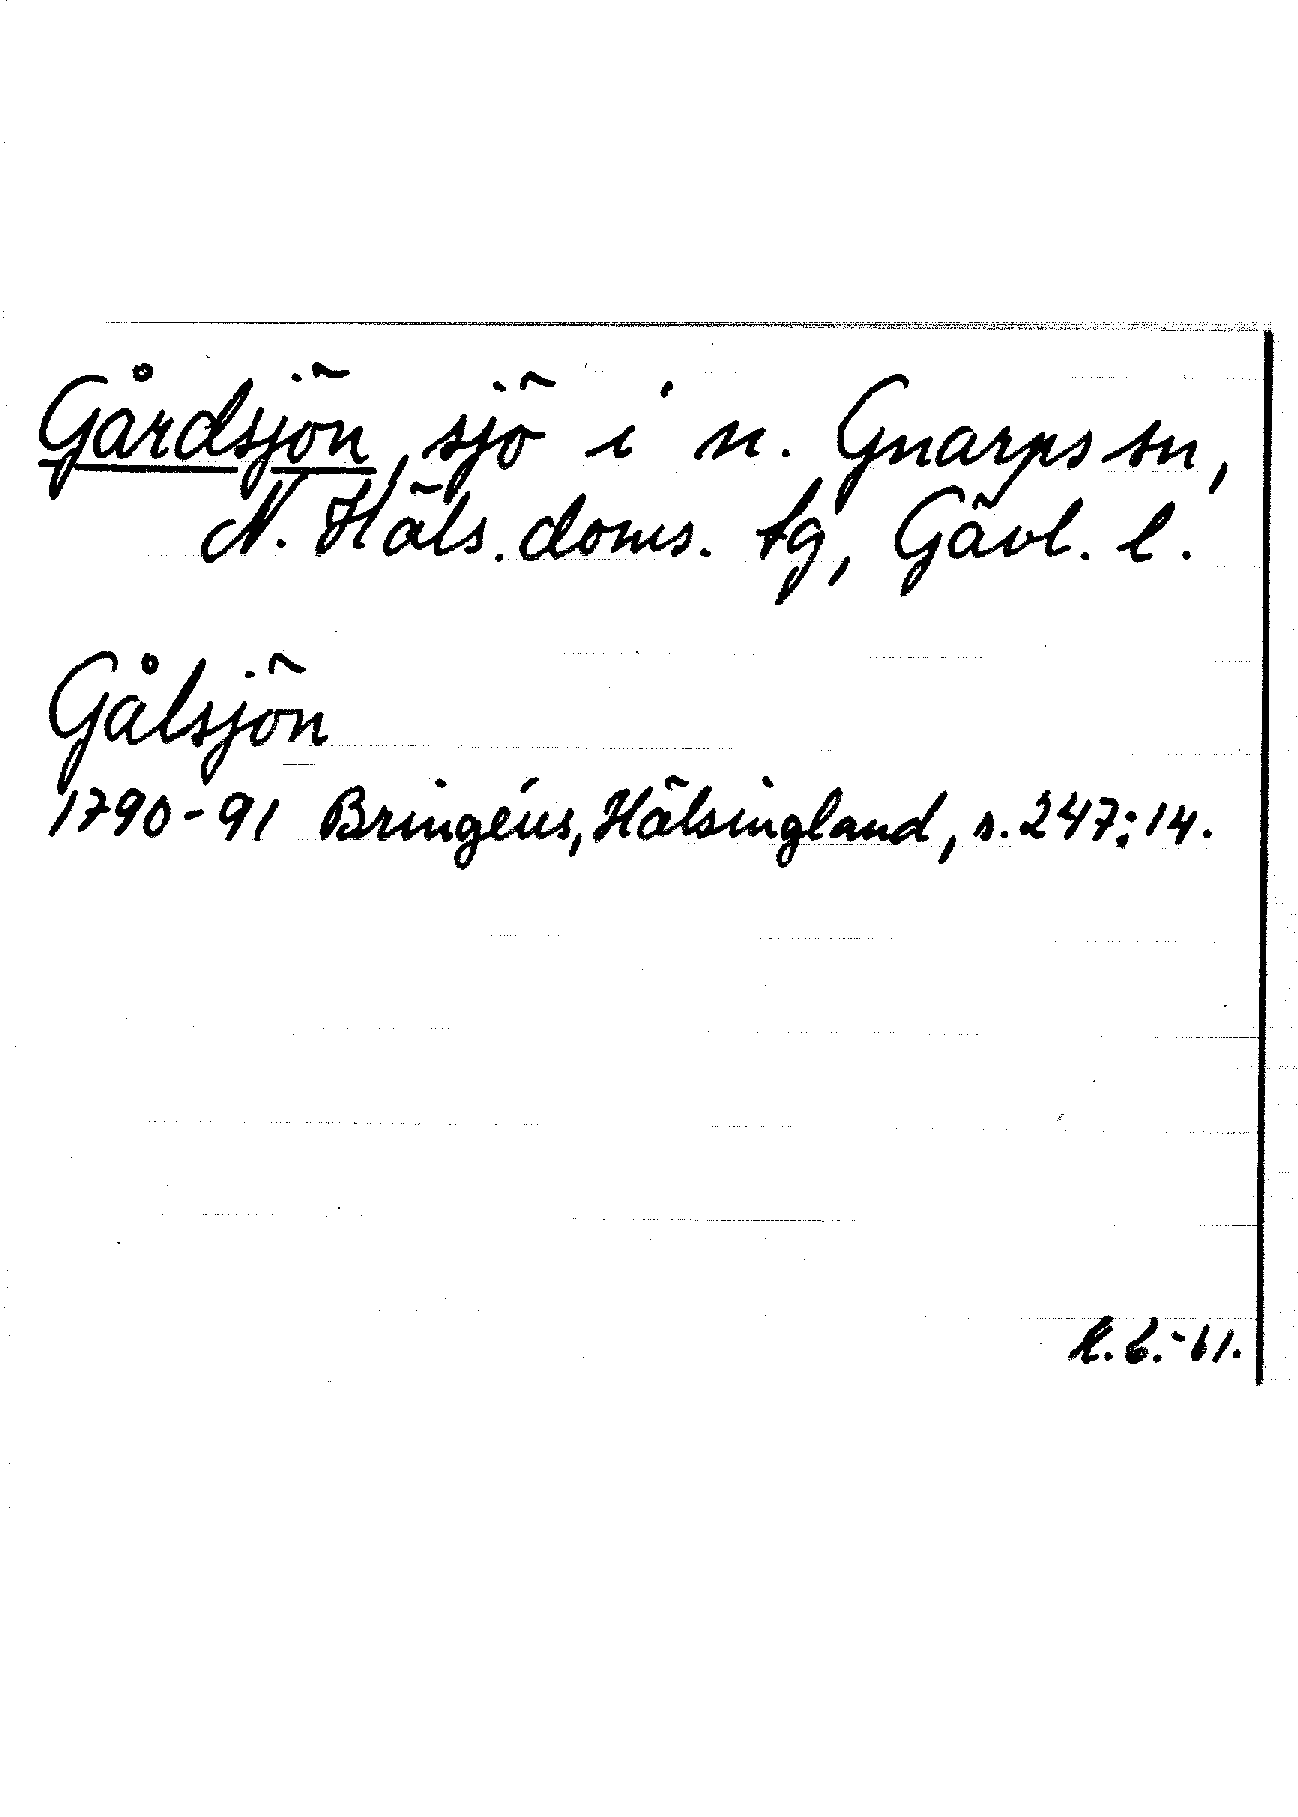 Gårdsjön, sjö i n. Gnarps sn,
N. Häls. doms. tg, Gävl. l.
Gålsjön
1790-91 Bringéus, Hälsingland, s. 247:14.